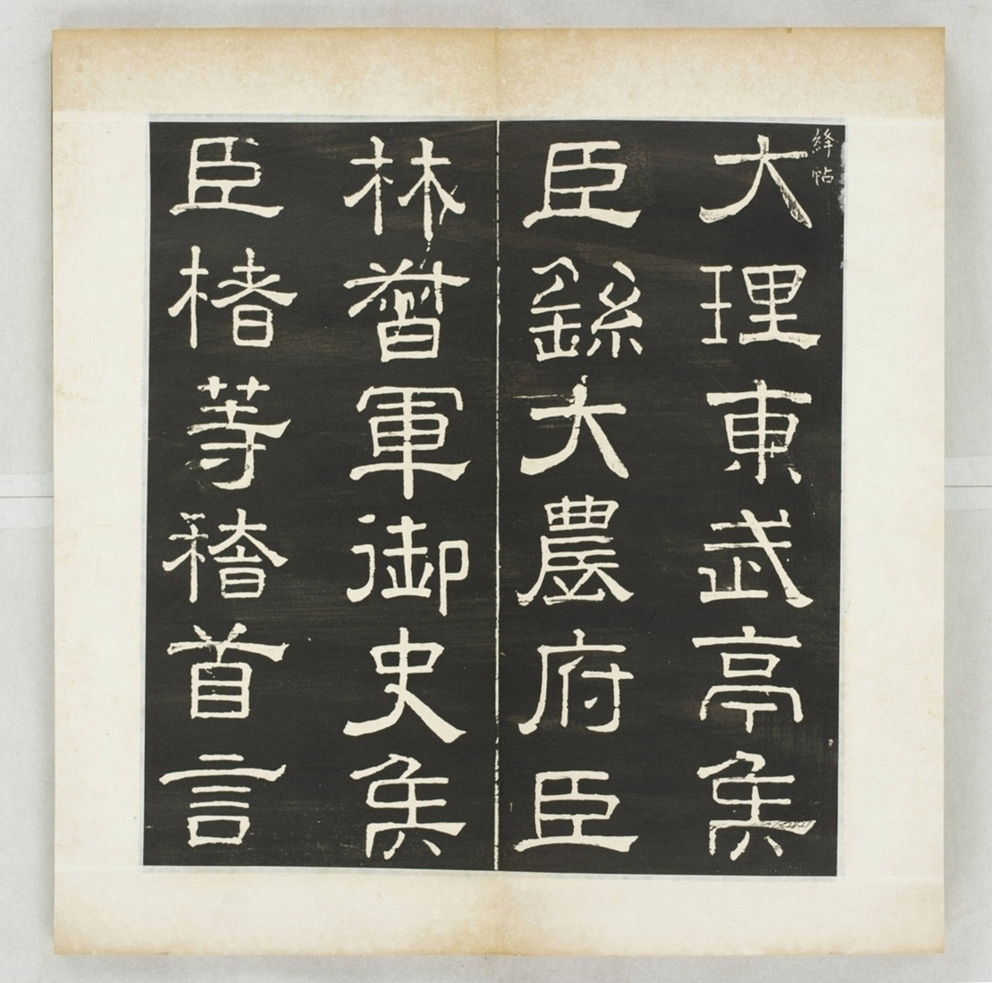 絳帖
大理東武亭矦
臣繇大農府臣
林督軍御史矦
臣楮等稽首言